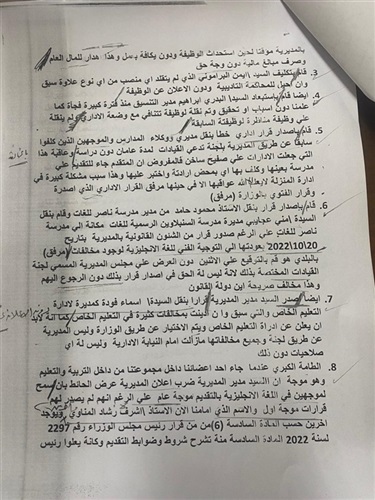 بالمديرية مؤقتا لحين استحداث الوظيفة ودون يكافة يعمل وهذا هدار للمال العام
وصرف مبالغ مالية دون وجة حق
3. قام بتكليف السيد \ايمن البراموني الذي لم يتقلد اي منصب من اي نوع علاوة سبق
وان احيل للمحاكمة التاديبية ودون الاعلان عن الوظيفة
4. ايضا قام باستبعاد السيد\ البدري ابراهيم مدير التنسيق منذ فترة كبيرة فجأة كما
علمنا دون اسباب او تحقيق وتم نقلة لوظيفة تتنافي مع وضعة الاداري ولم ينقلة
علي وظيفة مناظرة لوظيفتة السابقة
5. قام باصدار قرار اداري خطا بنقل مديري ووكلاء المدارس والموجهين الذين كلفوا
سابقا عن طريق المديرية بلجنة تدعي القيادات لمدة عامان دون دراسة عواقبة هذا
التي جعلت الادارات علي صفيح ساخن فالمفروض ان المتقدم جاء للتقديم علي
مدرسة بعينها وكلف بها اي بمحض ارادتة واختبر عليها وهذا سبب مشكلة كبيرة في
ادارة المنزلة عواقبها الا هي في حينة مرفق القرار الاداري الذي اصدرة
وقرار الفتوي بالوزارة (مرفق)
6. قام باصدار قرار بنقل الاستاذ محمود حامد من مدير مدرسة ناصر للغات وقام بنقل
السيدة \مني عجايبي مديرة مدرسة السنبلاوين الرسمية للغات مكانة الي مدرسة
ناصر للغات علي الرغم صدور قرار من الشئون القانونية بالمديرية بتاريخ
2022\10\20 بعودتها الي التوجية الفني للغة الانجليزية لوجود مخالفات (مرفق)
بالبلدي هو قم بالترقيع علي الاثنين دون العرض علي مجلس المديرية المسمي لجنة
القيادات المختصة بذلك لانة ليس لة الحق في اصدار قرار بذلك دون الرجوع اليهم
وهذا مخالف صريحة اين دولة القانون
7. ايضا اصدر السيد مدير المديرية قرارا بنقل السيدة\ اسماء فودة كمديرة لادارة
التعليم الخاص والتي سبق وا ن ادينت بمخالفات كثيرة في التعليم الخاص كما انة لابد
ان يعلن عن ادراة التعليم الخاص ويتم الاختيار عن طريق الوزارة وليس المديرية
عن طريق لجنة وجميع مخالفاتها مازالت امام النيابة الادارية وليس لة اي
صلاحيات دون ذلك
8. الطامة الكبري عندما جاء احد اعضائنا داخل مجموعتنا من داخل التربية والتعليم
وهو موجة ان السيد مدير المديرية ضرب اعلان المديرية عرض الحائط بان سمح
لموجهين في اللغة الانجليزية بالتقديم موجة عام علي الرغم انهم لم يصدر لهم
قرارات موجة اول والاسم الذي امامنا الان الاستاذ \اشرف رشاد المناوي ويوجد
اخرين حسب المادة السادسة (6)من من قرار رئيس مجلس الوزراء رقم 2297
لسنة 2022 المادة السادسة منة تشرح شروط وضوابط التقديم وكانة يعلوا رئيس